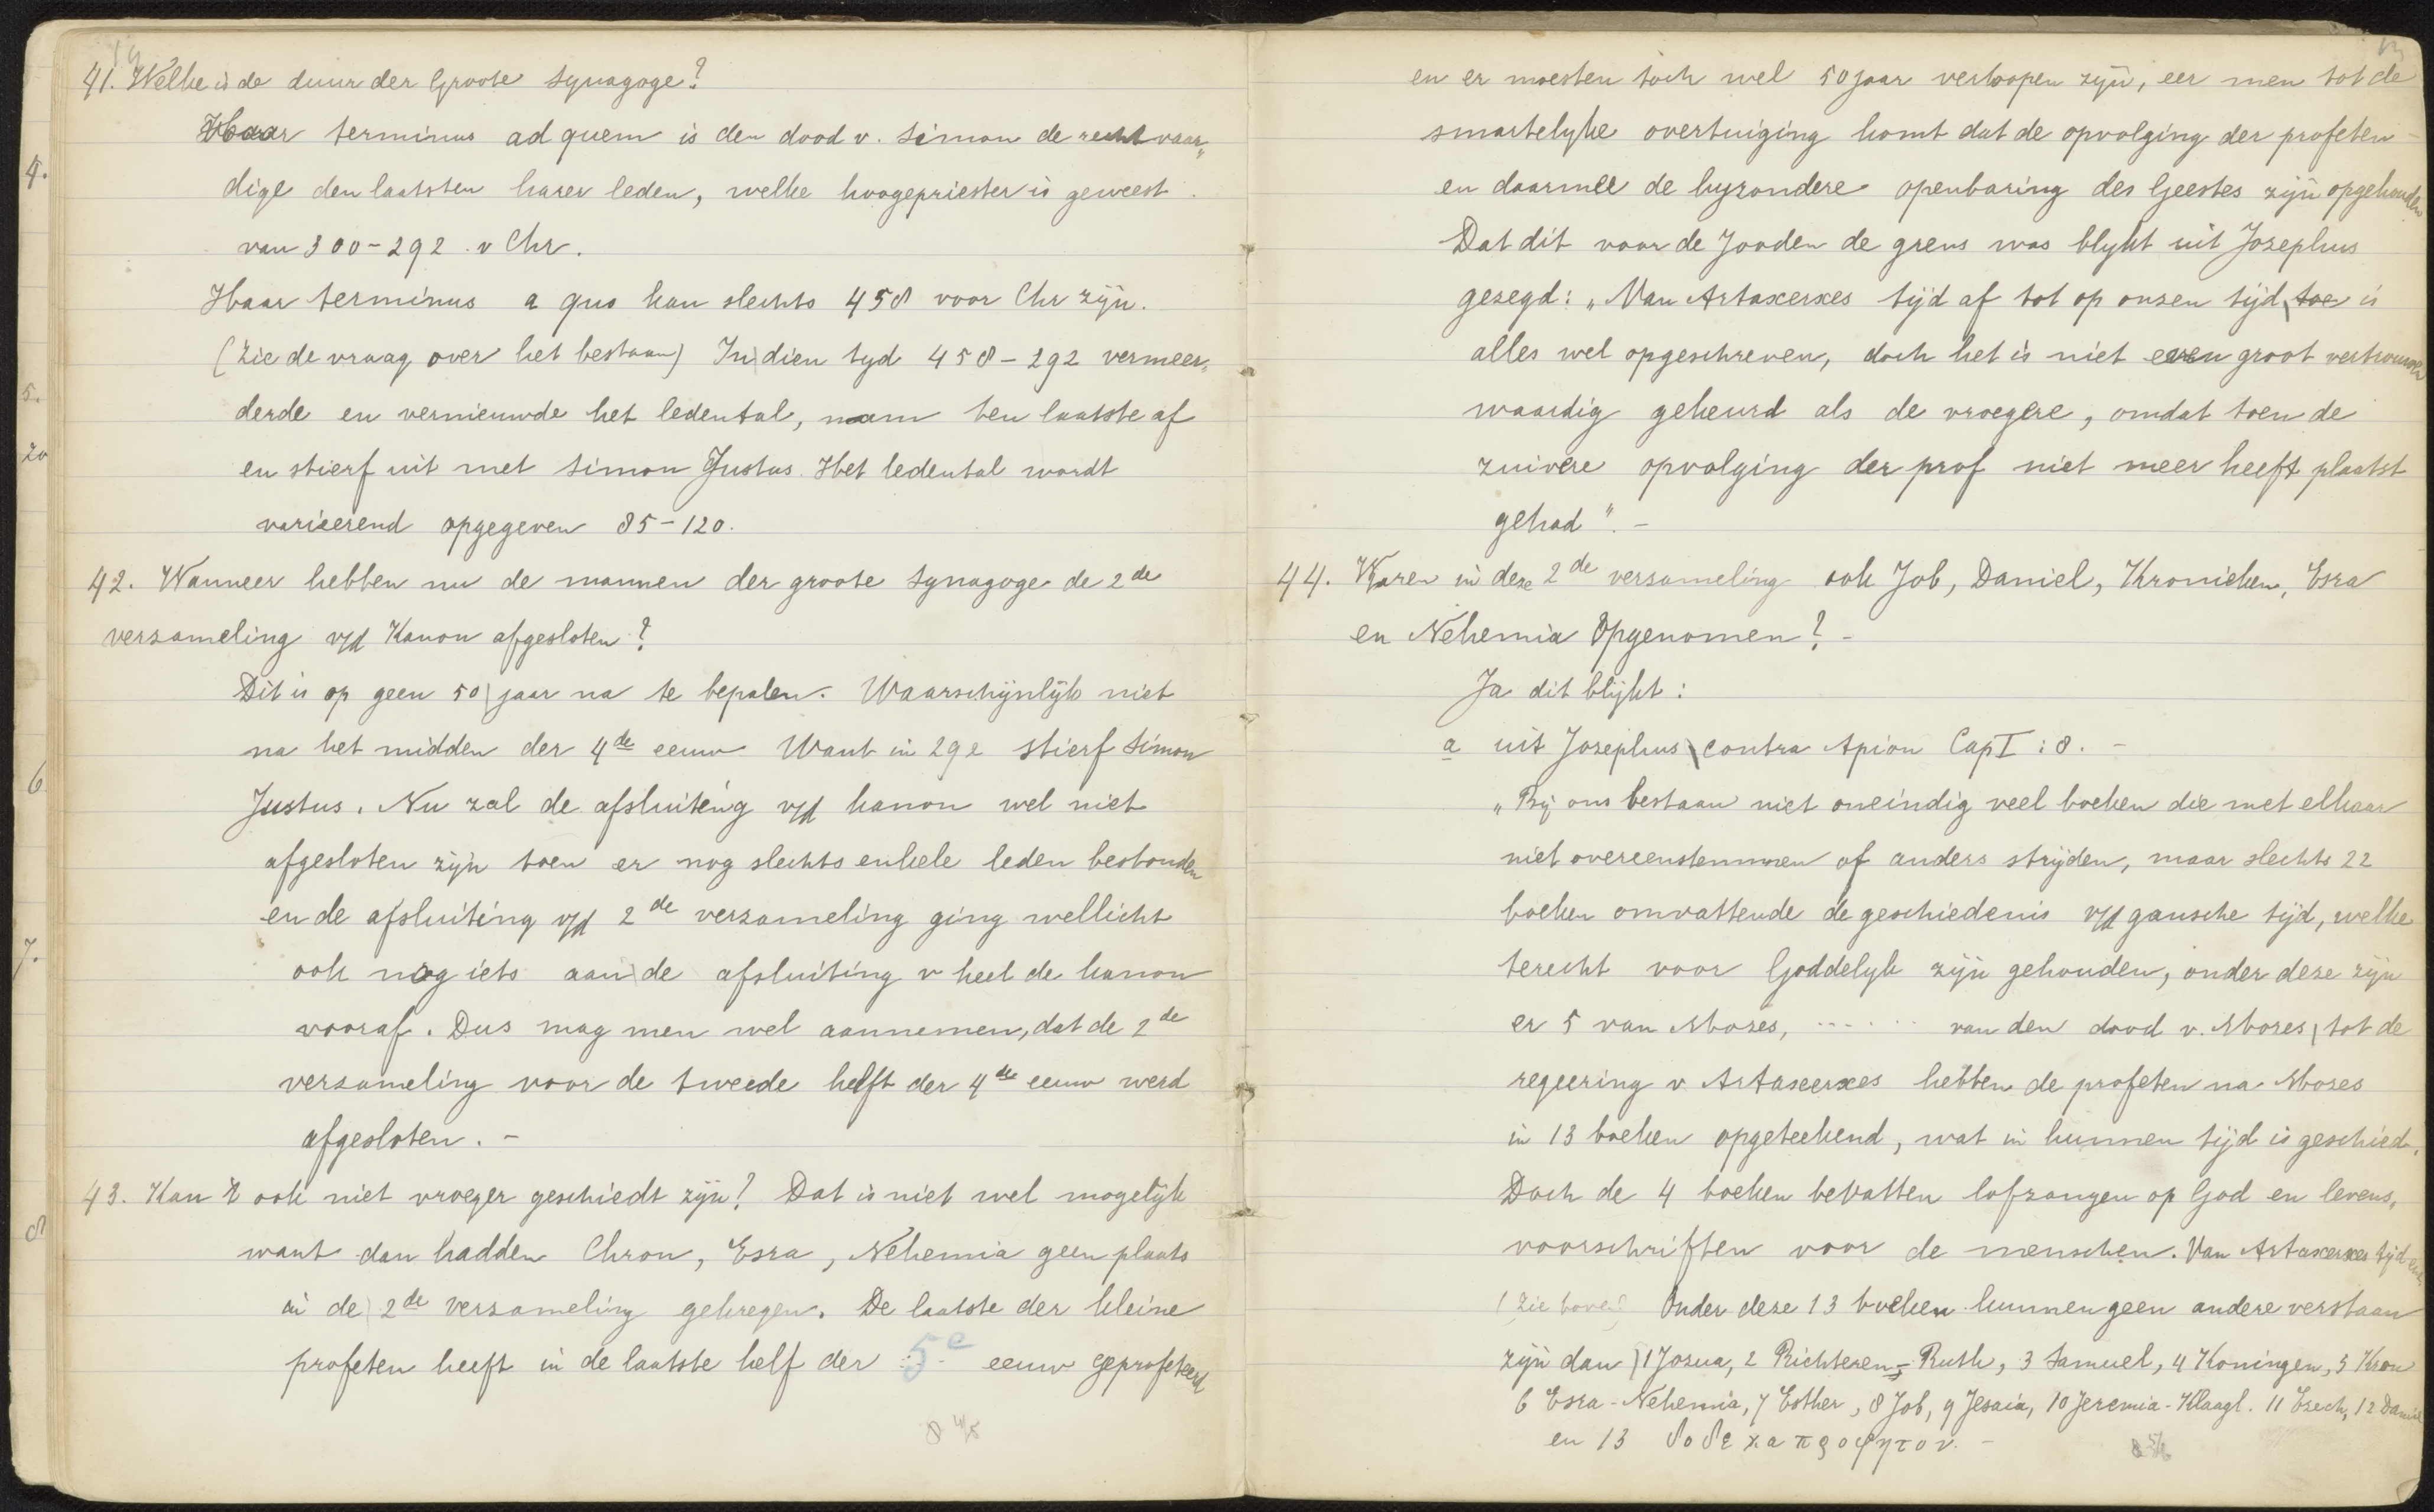 41. Welke is de duur der Groote Synagoge?
Haar terminus ad quem is den dood v. Simon de rechtvaar„
dige den laatsten harer leden, welke hoogepriester is geweest
van 300-292 v Chr.
Haar terminus a quo kan slechts 458 voor Chr zijn.
(Zie de vraag over het bestaan) In dien tyd 458-292 vermeer„
derde en vernieuwde het ledental, nam ten laatste af
en stierf uit met Simon Justus. Het ledental wordt
varieerend opgegeven 85-120.
42. Wanneer hebben nu de mannen der groote Synagoge de 2de
verzameling v/d Kanon afgesloten?
Dit is op geen 50 jaar na te bepalen. Waarschijnlijk niet
na het midden der 4de eeuw. Want in 292 stierf Simon
Justus. Nu zal de afsluiting v/d kanon wel niet
afgesloten zijn toen er nog slechts enkele leden bestonden
en de afsluiting v/d 2de verzameling ging wellicht
ook nog iets aan de afsluiting v heel de kanon
vooraf. Dus mag men wel aannemen, dat de 2de
verzameling voor de tweede helft der 4de eeuw werd
afgesloten. -
43. Kan 't ook niet vroeger geschiedt zijn? Dat is niet wel mogelijk
want dan hadden Chron, Esra, Nehemia geen plaats
in de 2de verzameling gekregen. De laatste der kleine
profeten heeft in de laatste helf der 5e eeuw geprofeteerd
8 4/5
en er moesten toch wel 50 jaar verloopen zijn, eer men tot de
smartelyke overtuiging komt dat de opvolging der profeten
en daarmee de byzondere openbaring des Geestes zijn opgehouden
Dat dit voor de Jooden de grens was blykt uit Josephus
gezegd: „Van Artaxerxes tijd af tot op onzen tijd toe is
alles wel opgeschreven, doch het is niet even groot vertrouwen
waardig gekeurd als de vroegere, omdat toen de
zuivere opvolging der prof niet meer heeft plaatst
gehad". -
44. Waren in deze 2de verzameling ook Job, Daniel, Kronieken, Esra
en Nehemia opgenomen? -
Ja dit blijkt:
a uit Josephus contra Apion Cap I : 8. -
„Bij ons bestaan niet oneindig veel boeken die met elkaar
niet overeenstemmen of anders strijden, maar slechts 22
boeken omvattende de geschiedenis v/d gansche tijd, welke
terecht voor Goddelyk zijn gehouden, onder deze zijn
er 5 van Mozes, ...... van den dood v. Mozes, tot de
regeering v Artaxerxes hebben de profeten na Mozes
in 13 boeken opgeteekend, wat in hunnen tijd is geschied.
Doch de 4 boeken bevatten lofzangen op God en levens„
voorschriften voor de menschen. Van Artaxerxes tijd enz
(zie boven) Onder deze 13 boeken kunnen geen andere verstaan
zijn dan 1 Jozua, 2 Richteren - Ruth, 3 Samuel, 4 Koningen, 5 Kron
6 Esra - Nehemia, 7 Esther, 8 Job, 9 Jesaia, 10 Jeremia - Klaagl. 11 Ezech, 12 Daniel
en 13 δοδεκαπροφητον. -
8 5/6
4.
5.
20
6
7.
8